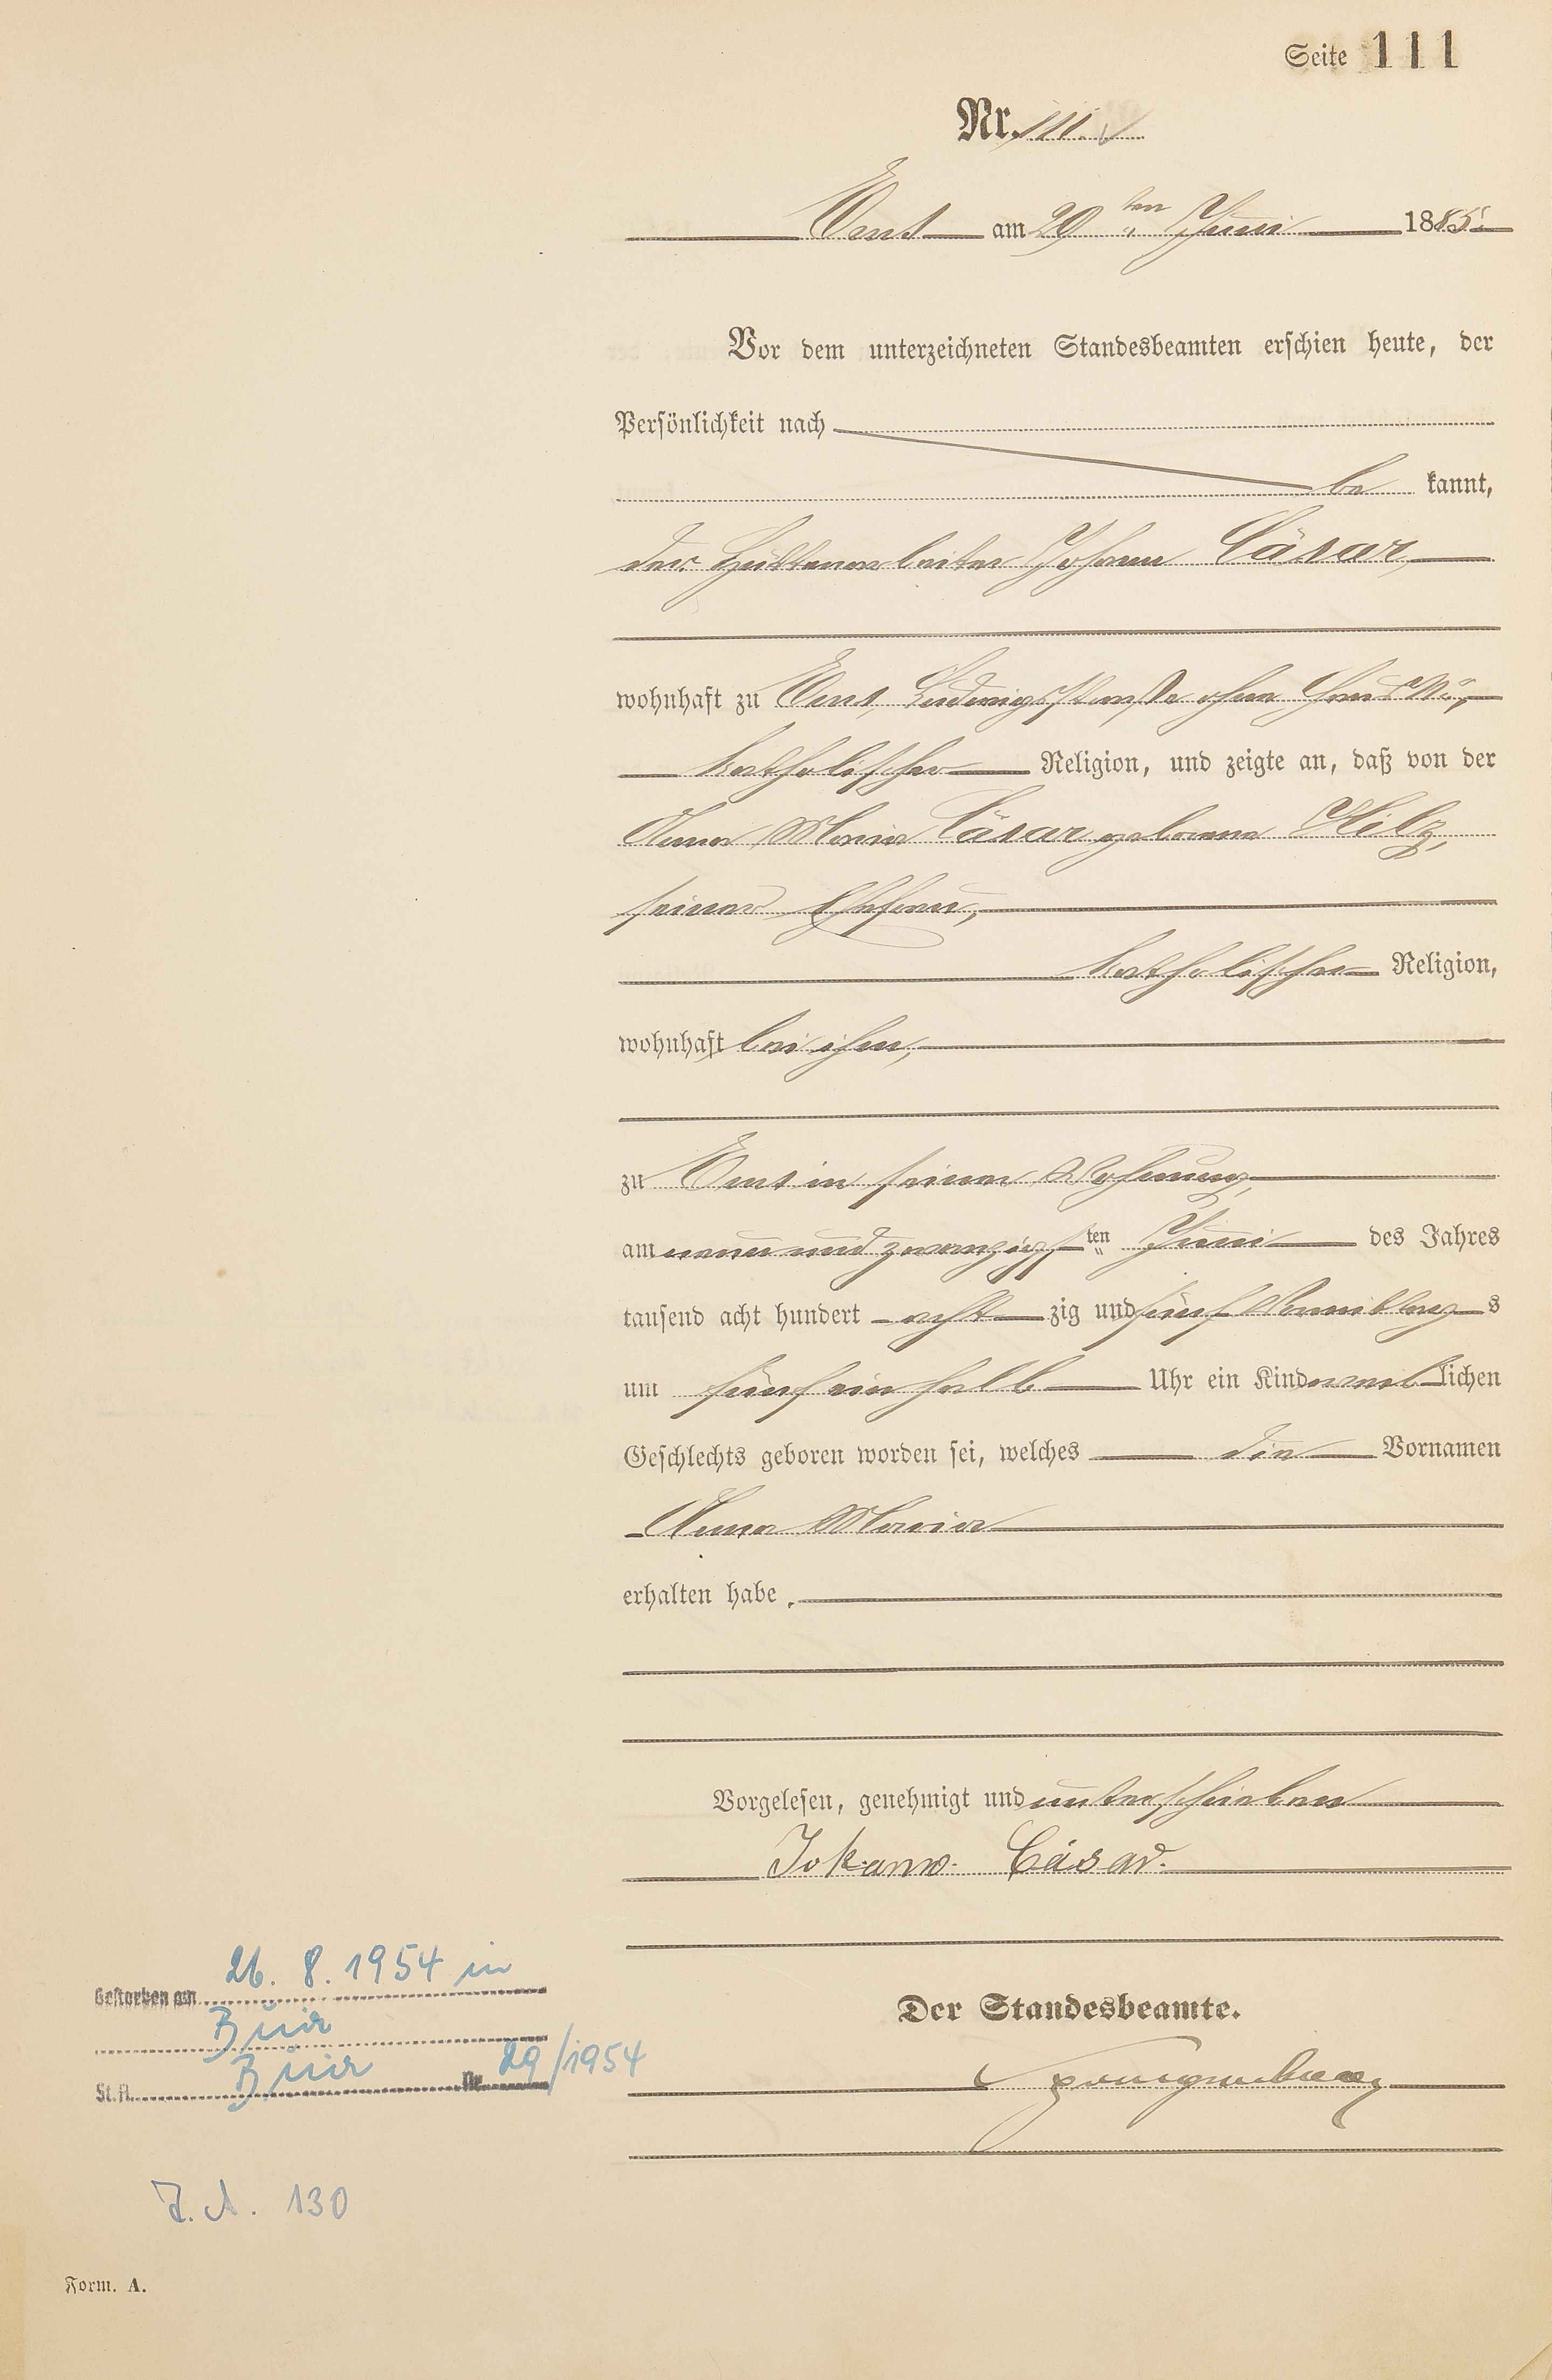 Seite 111
Nr. 111.
Ems am 29ten Juni 1885.
Vor dem unterzeichneten Standesbeamten erschien heute, der
Persönlichkeit nach
be kannt,
der Hüttenarbeiter Johann Cäsar,
wohnhaft zu Ems, Ludwigstraße ohne Haus Nr.,
katholischer Religion, und zeigte an, daß von der
Anna Maria Cäsar geborene Hilz,
seiner Ehefrau,
katholischer Religion,
wohnhaft bei ihm,
zu Ems in seiner Wohnung,
am neun und zwanzigsten Juni des Jahres
tausend acht hundert acht zig und fünf Vormittag s
um fünf ein halb Uhr ein Kind weib lichen
Geschlechts geboren worden sei, welches die Vornamen
Anna Maria
erhalten habe.
Vorgelesen, genehmigt und unterschrieben
Johann Cäsar.
Der Standesbeamte.
Gestorben am 26. 8. 1954 in
Buir
St.A. Buir Nr. 29/1954
J. A. 130
Form. A.